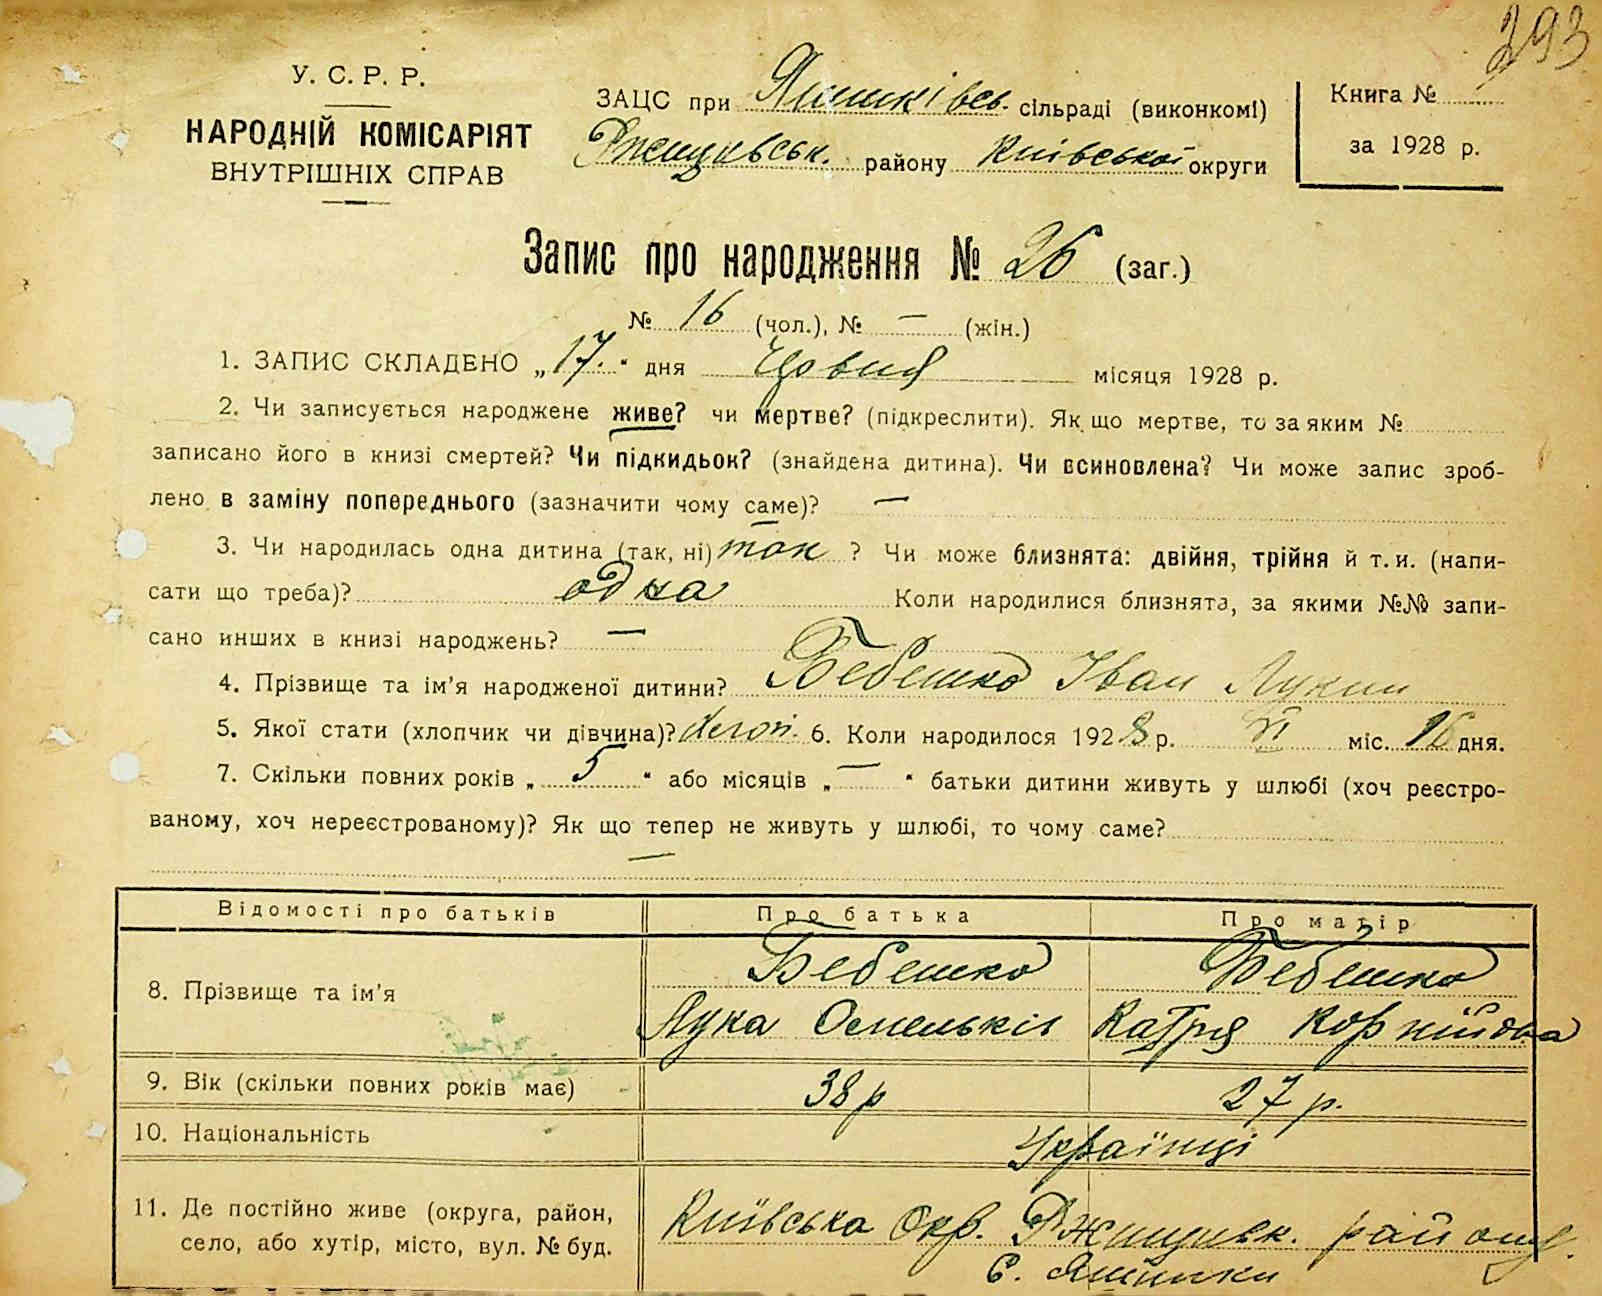 293
У. С. Р. Р.
НАРОДНІЙ КОМІСАРІЯТ
ВНУТРІШНІХ СПРАВ
ЗАЦС при Яшниківсь. сільраді (виконкомі)
Ржищівськ. району Київської округи
Книга №
за 1928 р.
Запис про народження № 26 (заг.)
№ 16 (чол.), № — (жін.)
1. ЗАПИС СКЛАДЕНО „17." дня Червня місяця 1928 р.
2. Чи записується народжене живе? чи мертве? (підкреслити). Як що мертве, то за яким №
записано його в книзі смертей? Чи підкидьок? (знайдена дитина). Чи всиновлена? Чи може запис зроб-
лено в заміну попереднього (зазначити чому саме)? —
3. Чи народилась одна дитина (так, ні) так ? Чи може близнята: двійня, трійня й т. и. (напи-
сати що треба)? одна Коли народилися близнята, за якими №№ запи-
сано инших в книзі народжень? —
4. Прізвище та ім'я народженої дитини? Бебешко Іван Лукич
5. Якої стати (хлопчик чи дівчина)? 6. Коли народилося 1928 р. VI міс. 16 дня.
7. Скільки повних років „ 5 " або місяців „ — " батьки дитини живуть у шлюбі (хоч реєстро-
ваному, хоч нереєстрованому)? Як що тепер не живуть у шлюбі, то чому саме?
—
Відомості про батьків Про батька Про матір
8. Прізвище та ім'я Бебешко Бебешко
Лука Омелькіл Катря Корнійова
9. Вік (скільки повних років має) 38 р 27 р.
10. Національність Українці
11. Де постійно живе (округа, район, Київська Окр. Ржищівськ. району.
село, або хутір, місто, вул. № буд. с. Яшники